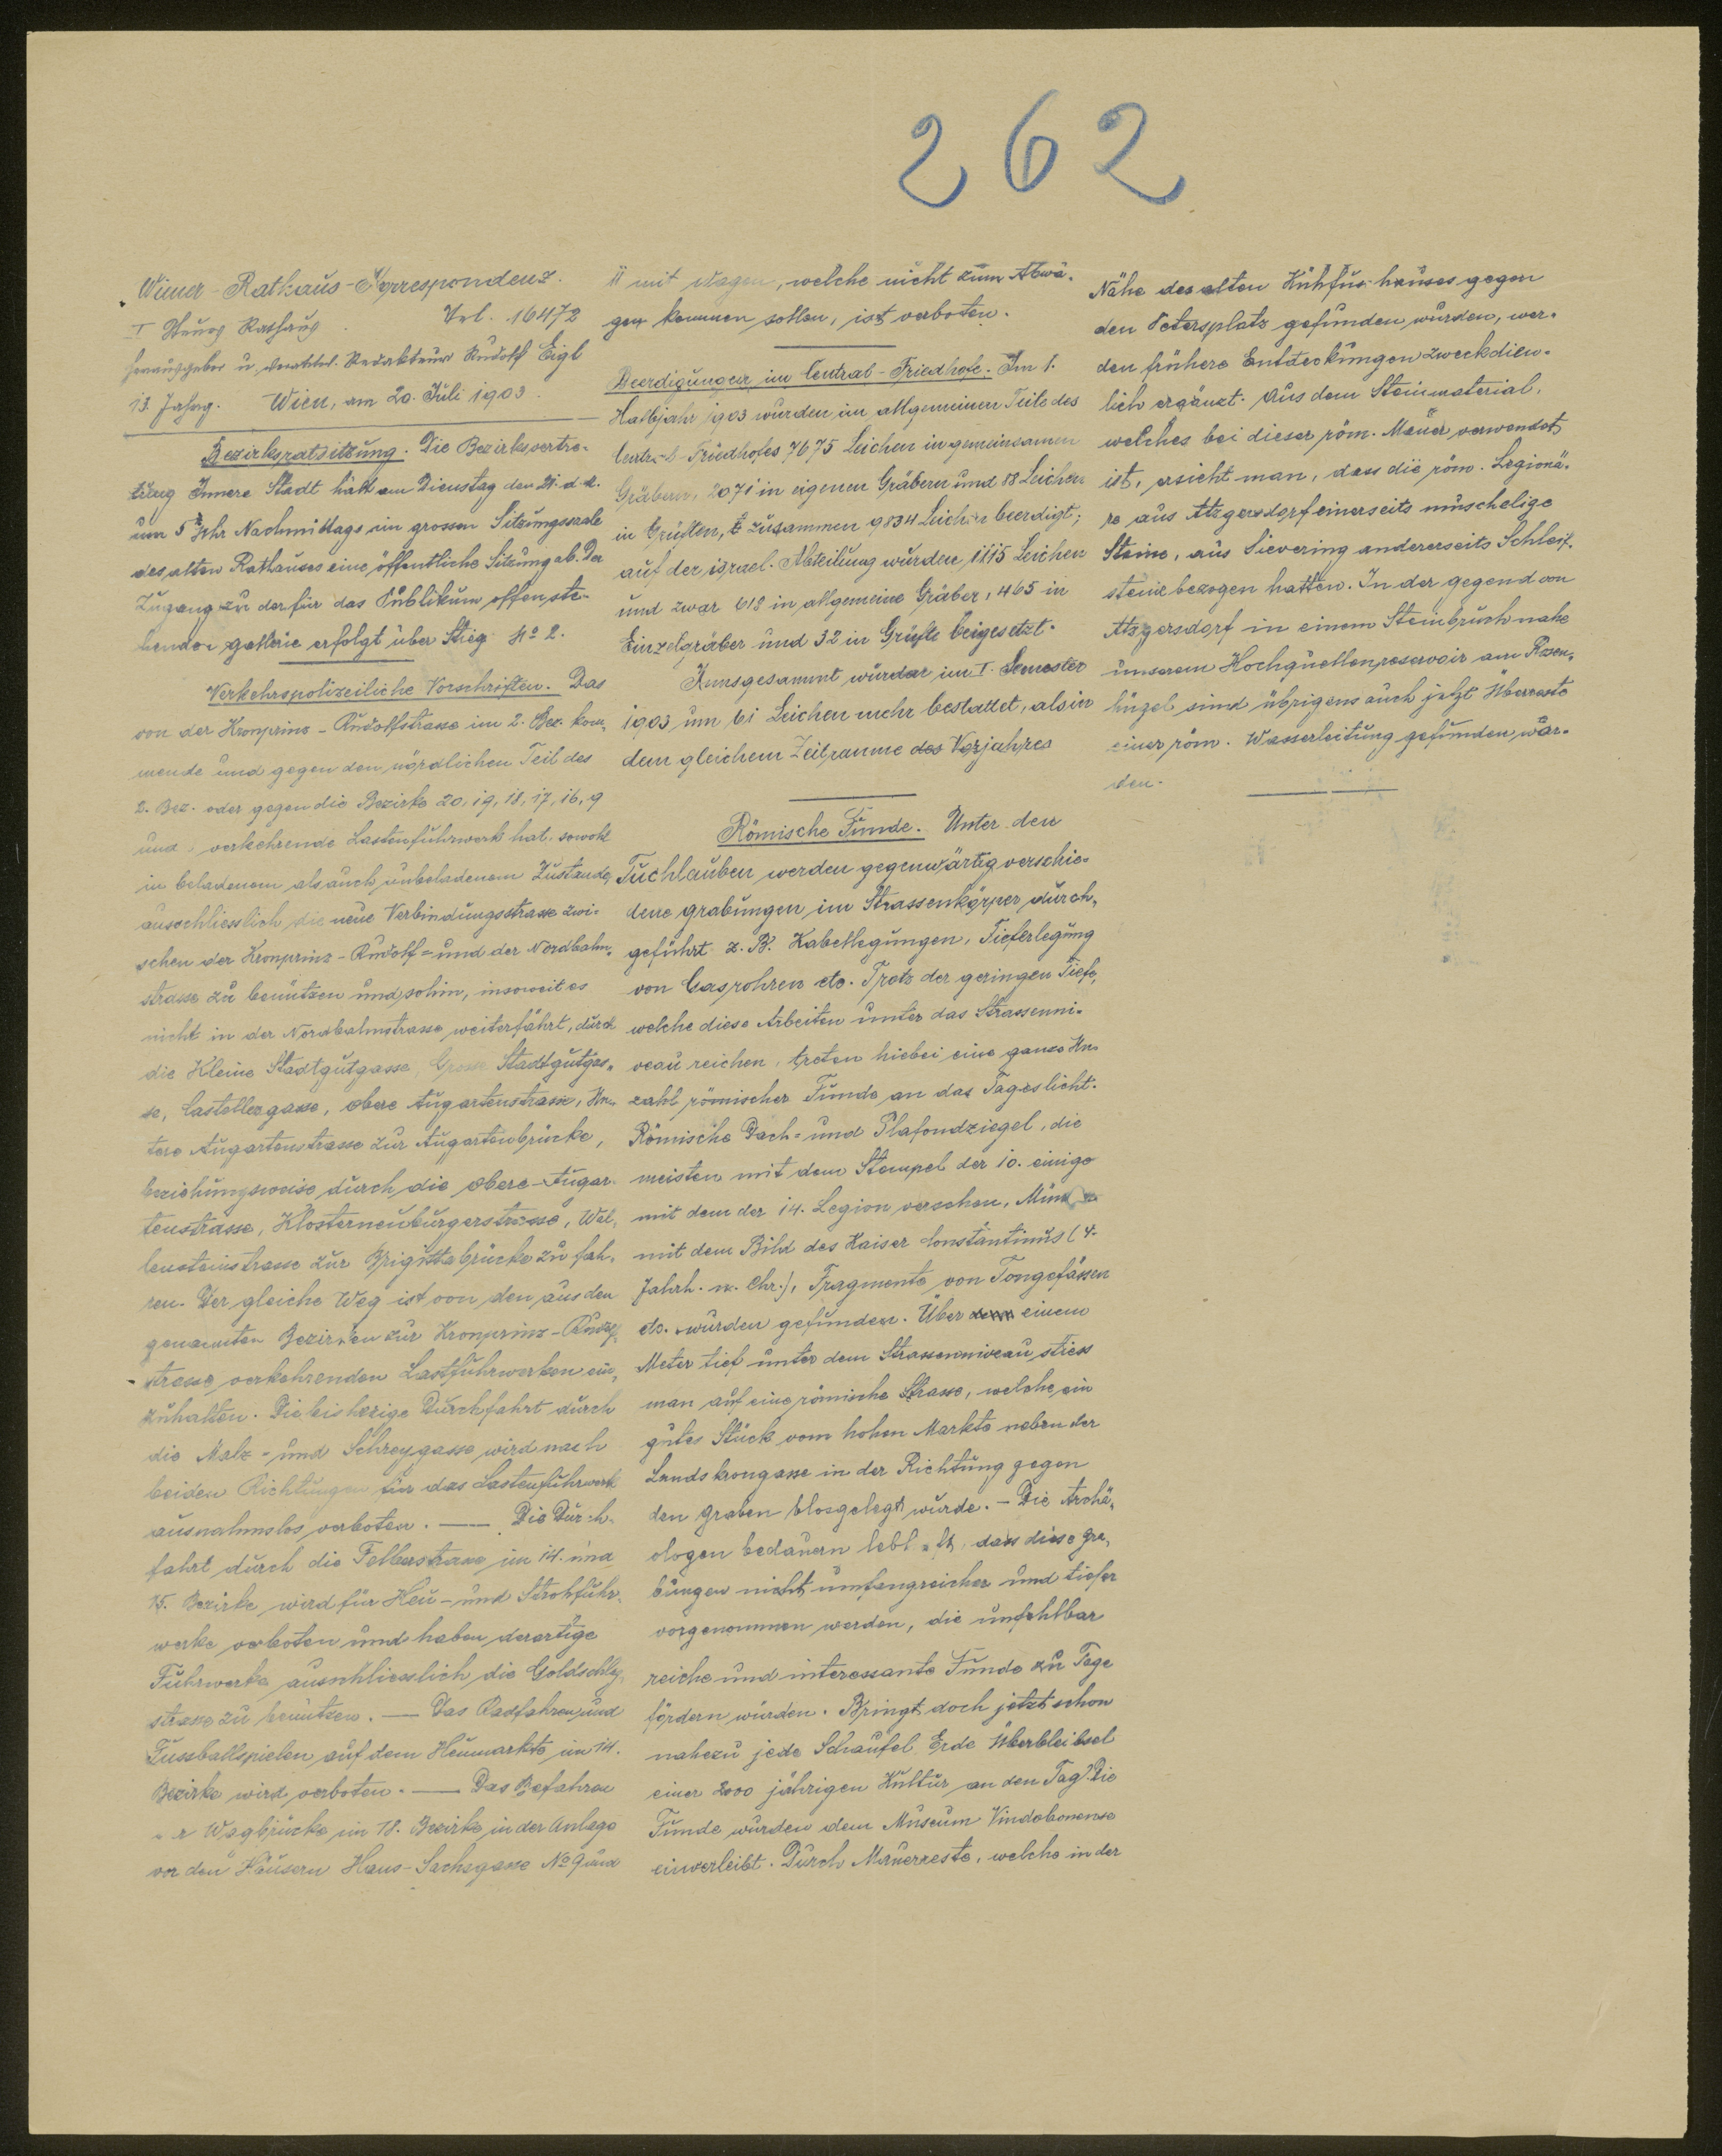 262
Wiener-Rathaus-Korrespondenz.
I Neues Rathaus. Tel. 16472
Herausgeber u. verantwl. Redakteur Rudolf Eigl
13. Jahrg. Wien, am 20. Juli 1903.
Bezirksratsitzung. Die Bezirksvertre-
tung Innere Stadt hält am Dienstag den 21. d. M.
um 5 Uhr Nachmittags im grossen Sitzungssaale
des alten Rathauses eine öffentliche Sitzung ab. Der
Zugang zu der für das Publikum offenste-
henden Gallerie erfolgt über Stieg No 2.
Verkehrspolizeiliche Vorschriften. Das
von der Kronprinz-Rudolfstrasse im 2. Bez. kom-
mende und gegen den nördlichen Teil des
2. Bez. oder gegen die Bezirke 20, 19, 18, 17, 16, 9
und verkehrende Lastenfuhrwerk hat, sowohl
in beladenem als auch unbeladenem Zustande,
ausschliesslich die neue Verbindungsstrasse zwi-
schen der Kronprinz-Rudolf- und der Nordbahn-
strasse zu benützen und sohin, insoweit es
nicht in der Nordbahnstrasse weiterfährt, durch
die Kleine Stadtgutgasse, Grosse Stadtgutgas-
se, Castellezgasse, Obere Augartenstrasse, Un-
tere Augartenstrasse zur Augartenbrücke,
beziehungsweise durch die Obere-Augar-
tenstrasse, Klosterneuburgerstrasse, Wal-
lensteinstrasse zur Brigittabrücke zu fah-
ren. Der gleiche Weg ist von den aus den
genannten Bezirken zur Kronprinz-Rudolf-
strasse verkehrenden Lastfuhrwerken ein-
zuhalten. Die bisherige Durchfahrt durch
die Malz- und Schreygasse wird nach
beiden Richtungen für das Lastenfuhrwerk
ausnahmslos verboten. — Die Durch-
fahrt durch die Felberstrasse im 14. und
15. Bezirke wird für Heu- und Strohfuhr-
werke verboten und haben derartige
Fuhrwerke ausschliesslich die Goldschlag-
strasse zu benützen. — Das Radfahren und
Fussballspielen auf dem Heumarkte im 14.
Bezirke wird verboten. — Das Befahren
der Wagbrücke im 18. Bezirke in der Anlage
vor den Häusern Hans-Sachsgasse No 9 und
11 mit Wagen, welche nicht zum Abwä-
gen kommen sollen, ist verboten.
Beerdigungen im Central-Friedhofe. Im 1.
Halbjahr 1903 wurden im allgemeinen Teile des
Central-Friedhofes 7675 Leichen in gemeinsamen
Gräbern, 2071 in eigenen Gräbern und 88 Leichen
in Grüften, zusammen 9834 Leichen beerdigt;
auf der israel. Abteilung wurden 1115 Leichen
und zwar 618 in allgemeine Gräber, 465 in
Einzelgräber und 32 in Grüfte beigesetzt.
Innsgesammt wurden im I. Semester
1903 um 61 Leichen mehr bestattet, als in
dem gleichem Zeitraume des Vorjahres
Römische Funde. Unter den
Tuchlauben werden gegenwärtig verschie-
dene Grabungen im Strassenkörper durch-
geführt z. B. Kabellegungen, Tieferlegung
von Gasrohren etc. Trotz der geringen Tiefe,
welche diese Arbeiten unter das Strassenni-
veau reichen, treten hiebei eine ganze An-
zahl römischer Funde an das Tageslicht.
Römische Dach- und Plafondziegel, die
meisten mit dem Stempel der 10. einige
mit dem der 14. Legion versehen, Münzen
mit dem Bild des Kaiser Constantinus (4.
Jahrh. n. Chr.), Fragmente von Tongefässen
etc. wurden gefunden. Über einem
Meter tief unter dem Strassenniveau stiess
man auf eine römische Strasse, welche ein
gutes Stück vom hohen Markte neben der
Landskrongasse in der Richtung gegen
den Graben blosgelegt wurde. — Die Archä-
ologen bedauern lebhaft, dass diese Gra-
bungen nicht umfangreicher und tiefer
vorgenommen werden, die unfehlbar
reiche und interessante Funde zu Tage
fördern würden. Bringt doch jetzt schon
nahezu jede Schaufel Erde Überbleibsel
einer 2000 jährigen Kultur an den Tag. Die
Funde wurden dem Museum Vindobonense
einverleibt. Durch Mauerreste, welche in der
Nähe des alten Kühfus-hauses gegen
den Petersplatz gefunden wurden, wer-
den frühere Entdeckungen zweckdien-
lich ergänzt. Aus dem Steinmaterial,
welches bei dieser röm. Mauer verwendet
ist, ersieht man, dass die röm. Legionä-
re aus Atzgersdorf einerseits muschelige
Steine, aus Sievering andererseits Schleif-
steine bezogen hatten. In der gegend von
Atzgersdorf in einem Steinbruch nahe
unserem Hochquellenreservoir am Rosen-
hügel sind übrigens auch jetzt Überreste
einer röm. Wasserleitung gefunden wor-
den.